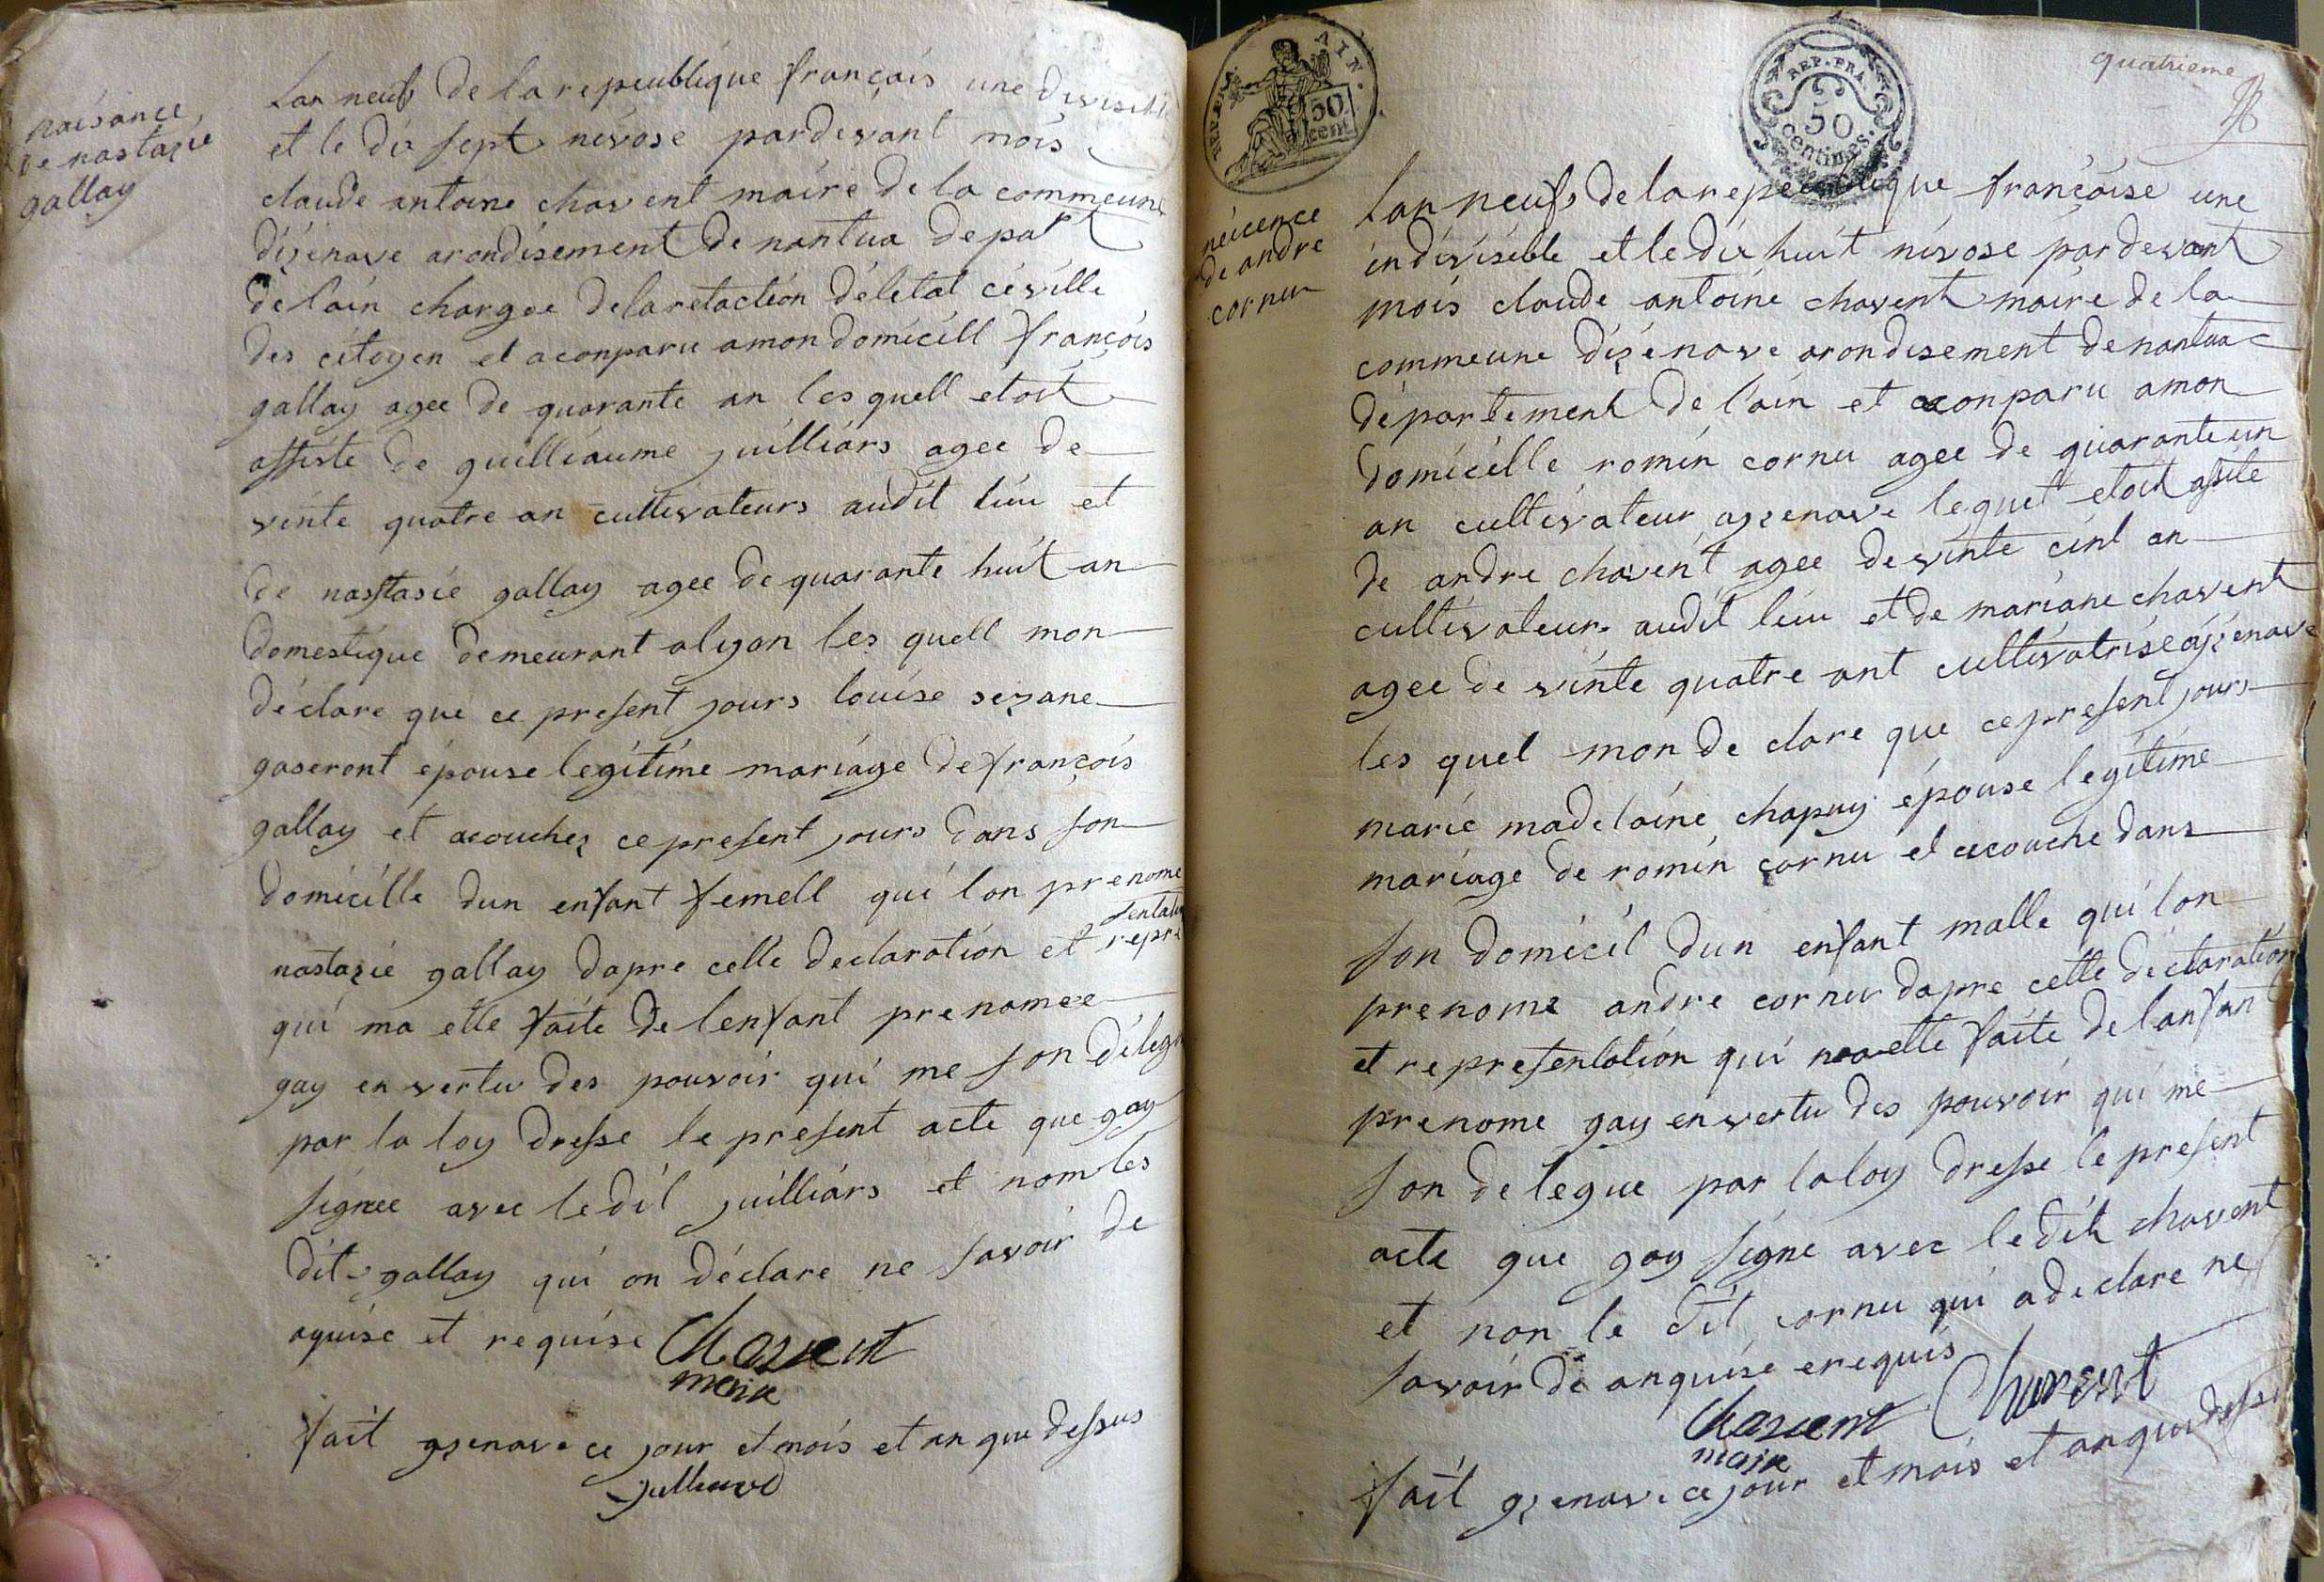 naisance
de nastazie
gallay
Lan neuf de la repeublique français une divisible
et le dix sept nivose pardevant mois
claude antoine chavent maire de la commeune
dizenave arondisement de nantua depart
de lain chargee delaretaction déletat céville
des citoyen et aconparu amon domicill françois
gallay agee de quarante an les quell etoit
assiste de guilliaume juilliars agee de
vinte quatre an cultivateurs audit lieu et
de nasstasie gallay agee de quarante huit an
domestique demeurant aligon les quell mon
déclare que ce present jours louise sezane
gaseront épouse legitime mariage de françois
gallay et acouchez ce present jours dans son
domicille dun enfant femell qui lon prenome
sentation
nastazie gallay dapre celle declaration et repre
qui ma elle faite de lenfant prenomee
gay en vertu des pouvoir qui me son délegu
par la loy dresse le present acte que gay
signee avec ledit juilliars et nom les
dit gallay qui on déclare ne savoir de
aquise et requise Chavent
maire
fait azenave ce jour et mois et an que dessus
quatrieme
REP. FRA. AIN.
50
cent.
REP. FRA.
50
centimes.
neicence
de andre
cornu
Lan neufs de la repeublique françoise une
indivisible et le dix huit nivose pardevant
mois claude antoine chavent maire de la
commeune dizenave arondisement de nantua
département de lain et aconparu amon
domicille romin cornu agee de quarante un
an cultivateur azenave lequel etoit assite
de andre chavent agee de vinte cint an
cultivateur audit lieu et de mariane chavent
agee de vinte quatre ant cultivatrise azenave
les quel mon de clare que ce present jours
marie madelaine chapuy épouse legitime
mariage de romin cornu et acouche dans
son domicil dun enfant malle qui lon
prenome andre cornu dapre cette declaration
et representation qui ma elle faite de lanfant
prenome gay en vertu des pouvoir qui me
son delegue par la loy dresse le present
acte que gay signe avec le dit chavent
et non le dit cornu qui a declare ne
savoir de anquise erequis
Chavent Chavent
maire
fait azenave ce jour et mois et anque dessu